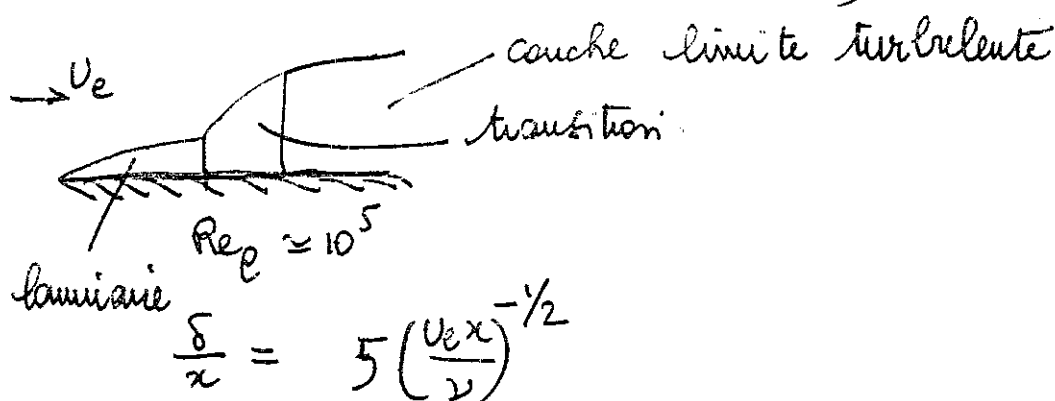 couche limite turbulente
→ Ue
transition
Re_ℓ ≃ 10^5
laminaire
δ/x = 5 (Ue x / ν)^-1/2